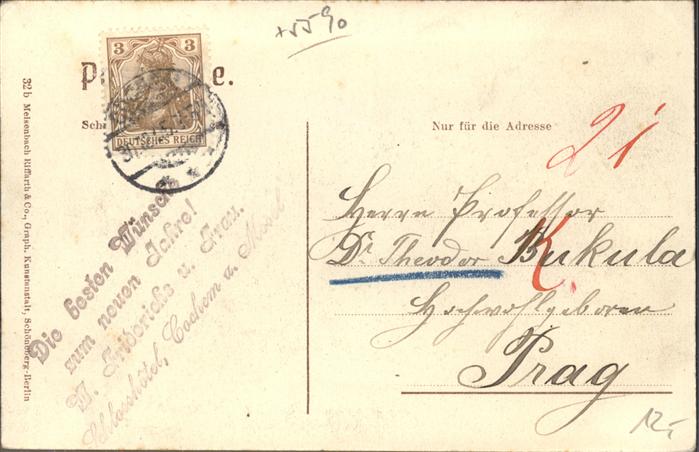 +5590
3 3
DEUTSCHES REICH
Nur für die Adresse
21
Herrn Professor
Dr Theodor Kukula
Hochwohlgeboren
Prag
12,-
Die besten Wünsche
zum neuen Jahre!
Fridérichs u. Frau.
Schlosshôtel, Cochem a. Mosel
32b Meisenbach Riffarth & Co., Graph. Kunstanstalt, Schöneberg-Berlin